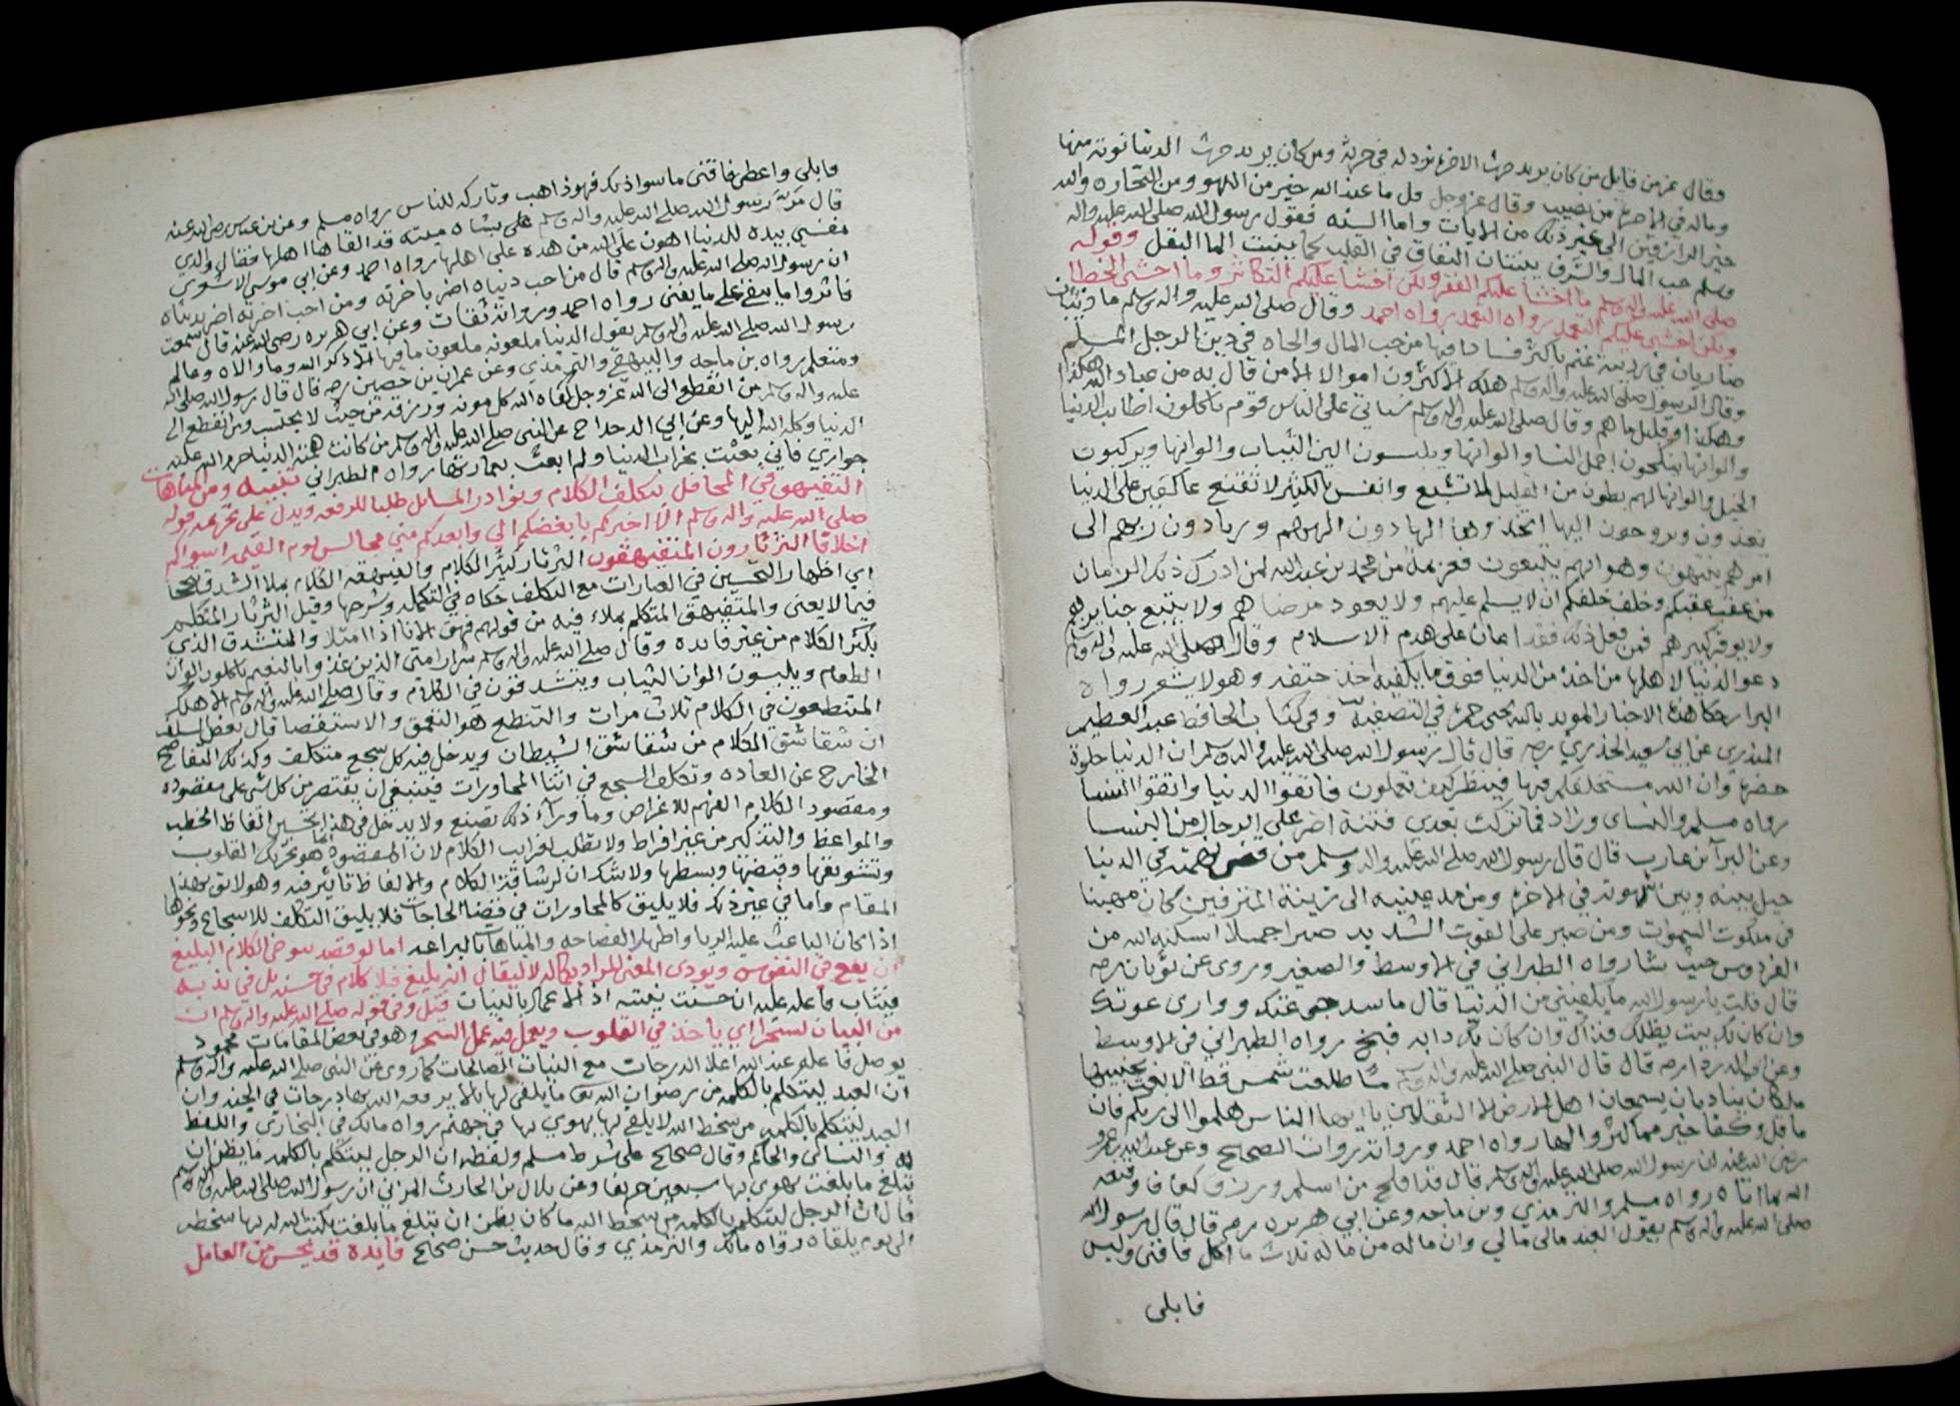 وقال عز من قايل من كان يريد حرث الاخرة نزد له في حرثه ومن كان يريد حرث الدنيا نوته منها
وماله في الاخرة من نصيب وقال عز وجل قل ما عند الله خير من اللهو ومن التجاره والله
خير الرازقين الى غير ذلك من الايات واما السنه فقول رسول الله صلى الله عليه واله
وسلم حب المال والشرف ينبتان النفاق في القلب كما ينبت الما البقل وقوله
صلى الله عليه واله وسلم ما اخشا عليكم الفقر ولكن اخشا عليكم التكاثر وما اخشى الخطا
ولكن اخشى عليكم التعمد رواه احمد وقال صلى الله عليه واله وسلم ما ذئبان
ضاريان في زريبة غنم باكثر فسادا فيها من حب المال والجاه في دين الرجل المسلم
وقال الرسول صلى الله عليه واله وسلم هلك الاكثرون اموالا الا من قال به من عباد الله هكذا
وهكذا وقليل ما هم وقال صلى الله عليه واله وسلم سياتي على الناس قوم ياكلون اطايب الدنيا
والوانها ينكحون اجمل النسا والوانها ويلبسون الين الثياب والوانها ويركبون
الخيل والوانها لهم بطون من القليل لا تشبع وانفس بالكثير لا تقنع عاكفين على الدنيا
يغدون ويروحون اليها اتخذوها الها دون الههم وربا دون ربهم الى
امرهم ينتهون وهواهم يتبعون فعزيمة من محمد بن عبد الله لمن ادرك ذلك الزمان
من عقب عقبكم وخلف خلفكم ان لا يسلم عليهم ولا يعود مرضاهم ولا يتبع جنايزهم
ولا يوقر كبيرهم فمن فعل ذلك فقد اعان على هدم الاسلام وقال صلى الله عليه واله وسلم
دعو الدنيا لاهلها من اخذ من الدنيا فوق ما يكفيه اخذ حتفه وهو لا يشعر رواه
البزار حكا هذه الاخبار المويد بالله يحيى بن حمزه في التصفيه وفي كتاب الحافظ عبد العظيم
المنذري عن ابي سعيد الخدري رضه قال قال رسول الله صلى الله عليه واله وسلم ان الدنيا حلوة
خضره وان الله مستخلفكم فيها فينظر كيف تعملون فاتقوا الدنيا واتقوا النسا
رواه مسلم والنساي وزاد فما تركت بعدي فتنة اضر على الرجال من النسا
وعن البرآ بن عازب قال قال رسول الله صلى الله عليه واله وسلم من قضى نهمته في الدنيا
حيل بينه وبين شهوته في الاخرة ومن مد عينيه الى زينة المترفين كان مهينا
في ملكوت السموات ومن صبر على القوت الشديد صبرا جميلا اسكنه الله من
الفردوس حيث شا رواه الطبراني في الاوسط والصغير وروى عن ثوبان رضه
قال قلت يا رسول الله ما يكفيني من الدنيا قال ما سد جوعتك ووارى عورتك
وان كان لك بيت يظلك فذاك وان كان لك دابه فبخ بخ رواه الطبراني في الاوسط
وعن ابي الدردا رضه قال قال النبي صلى الله عليه واله وسلم ما طلعت شمس قط الا بعث بجنبتيها
ملكان يناديان يسمعان اهل الارض الا الثقلين يا ايها الناس هلموا الى ربكم فان
ما قل وكفا خير مما كثر والها رواه احمد ورواته روات الصحيح وعن عبد الله بن عمرو
رضي الله عنه ان رسول الله صلى الله عليه واله وسلم قال قد افلح من اسلم ورزق كفافا وقنعه
الله بما اتاه رواه مسلم والترمذي وبن ماجه وعن ابي هريره رضه قال قال رسول الله
صلى الله عليه واله وسلم يقول العبد مالي مالي وان ما له من ماله ثلاث ما اكل فافنى ولبس
فابلى
فابلى واعطى فاقنى ما سوا ذلك فهو ذاهب وتاركه للناس رواه مسلم وعن بن عباس رضى الله عنه
قال مر رسول الله صلى الله عليه واله وسلم على بشاه ميته قد القاها اهلها فقال والذي
نفسي بيده للدنيا اهون على الله من هذه على اهلها رواه احمد وعن ابي موسى الاشعري
ان رسول الله صلى الله عليه واله وسلم قال من احب دنياه اضر باخرته ومن احب اخرته اضر بدنياه
فاثروا ما يبقى على ما يفنى رواه احمد ورواته ثقات وعن ابي هريره رضى الله عنه قال سمعت
رسول الله صلى الله عليه واله وسلم يقول الدنيا ملعونه ملعون ما فيها الا ذكر الله وما والاه وعالم
ومتعلم رواه بن ماجه والبيهقي والترمذي وعن عمران بن حصين رضه قال قال رسول الله صلى الله
عليه واله وسلم من انقطع الى الله عز وجل كفاه الله كل مونه ورزقه من حيث لا يحتسب ومن انقطع الى
الدنيا وكله الله اليها وعن ابي الدحداح عن النبي صلى الله عليه واله وسلم من كانت همته الدنيا حرم الله عليه
جواري فاني بعثت بخراب الدنيا ولم ابعث بعمارتها رواه الطبراني تنبيه ومن المباهات
التفيهق في المحافل بتكلف الكلام ونوادر المسائل طلبا للرفعه ويدل على تحريمه قوله
صلى الله عليه واله وسلم الا اخبركم بابغضكم الي وابعدكم مني مجالس يوم القيمه اسواكم
اخلاقا الثرثارون المتفيهقون الثرثار كثير الكلام والفيهقه الكلام بملا الشدق تبجحا
اي اظهار التحسين في العبارات مع التكلف حكاه في التكمله وشرحها وقيل الثرثار المتكلم
فيما لا يعنى والمتفيهق المتكلم بملاء فيه من قولهم فهق الانا اذا امتلا والمتشدق الذي
يكثر الكلام من غير فايده وقال صلى الله عليه واله وسلم شرار امتي الذين غذوا بالنعيم ياكلون الوان
الطعام ويلبسون الوان الثياب ويتشدقون في الكلام وقال صلى الله عليه واله وسلم الا هلك
المتنطعون في الكلام ثلاث مرات والتنطع هو التعمق والاستقصا قال بعض السلف
ان شقاشق الكلام من شقاشق الشيطان ويدخل فيه كل سجع متكلف وكذلك التفاصح
الخارج عن العاده وتكلف السجع في اثنا المحاورات فينبغي ان يقتصر من كل شى على مقصوده
ومقصود الكلام الفهم للاغراض وما ورآء ذلك تصنع ولا يدخل في هذا تحسين الفاظ الخطب
والمواعظ والتذكير من غير افراط ولا تطلب لغرايب الكلام لان المقصود انما هو تحريك القلوب
وتشويقها وقبضها وبسطها ولا شك ان لرشاقة الكلام والالفاظ تاثير فيه وهو لايق بهذا
المقام واما في غير ذلك فلا يليق كالمحاورات في قضا الحاجات فلا يليق التكلف للاسجاع ونحوها
اذا كان الباعث عليه الريا واظهار الفصاحه والمباهاة بالبراعه اما لو قصد بعوض الكلام البليغ
ان يقع في النفوس ويودى المعنى المراد بكماله لا ليقال انه بليغ فلا كلام في حسنه بل في ندبه
فيثاب فاعله عليه ان حسنت نيته اذ الاعمال بالنيات قيل وفي قوله صلى الله عليه واله وسلم ان
من البيان لسحرا اي ياخذ في القلوب ويعمل فيه عمل السحر وهو في بعض المقامات محمود
يوصل فاعله عند الله اعلا الدرجات مع النيات الصالحات كما روى عن النبي صلى الله عليه واله وسلم
ان العبد ليتكلم بالكلمه من رضوان الله تعالى ما يلقى لها بالا يرفعه الله بها درجات في الجنه وان
العبد ليتكلم بالكلمه من سخط الله لا يلقى لها يهوي بها في جهنم رواه مالك في البخاري واللفظ
له والنسائي والحاكم وقال صحيح على شرط مسلم ولفظه ان الرجل ليتكلم بالكلمه ما يظن ان
تبلغ ما بلغت يهوي بها سبعين خريفا وعن بلال بن الحارث المزني ان رسول الله صلى الله عليه واله وسلم
قال ان الرجل ليتكلم بالكلمه من سخط الله ما كان يظن ان تبلغ ما بلغت يكتب الله له بها سخطه
الى يوم يلقاه رواه مالك والترمذي وقال حديث حسن صحيح فايدة قد يحسن من العامل